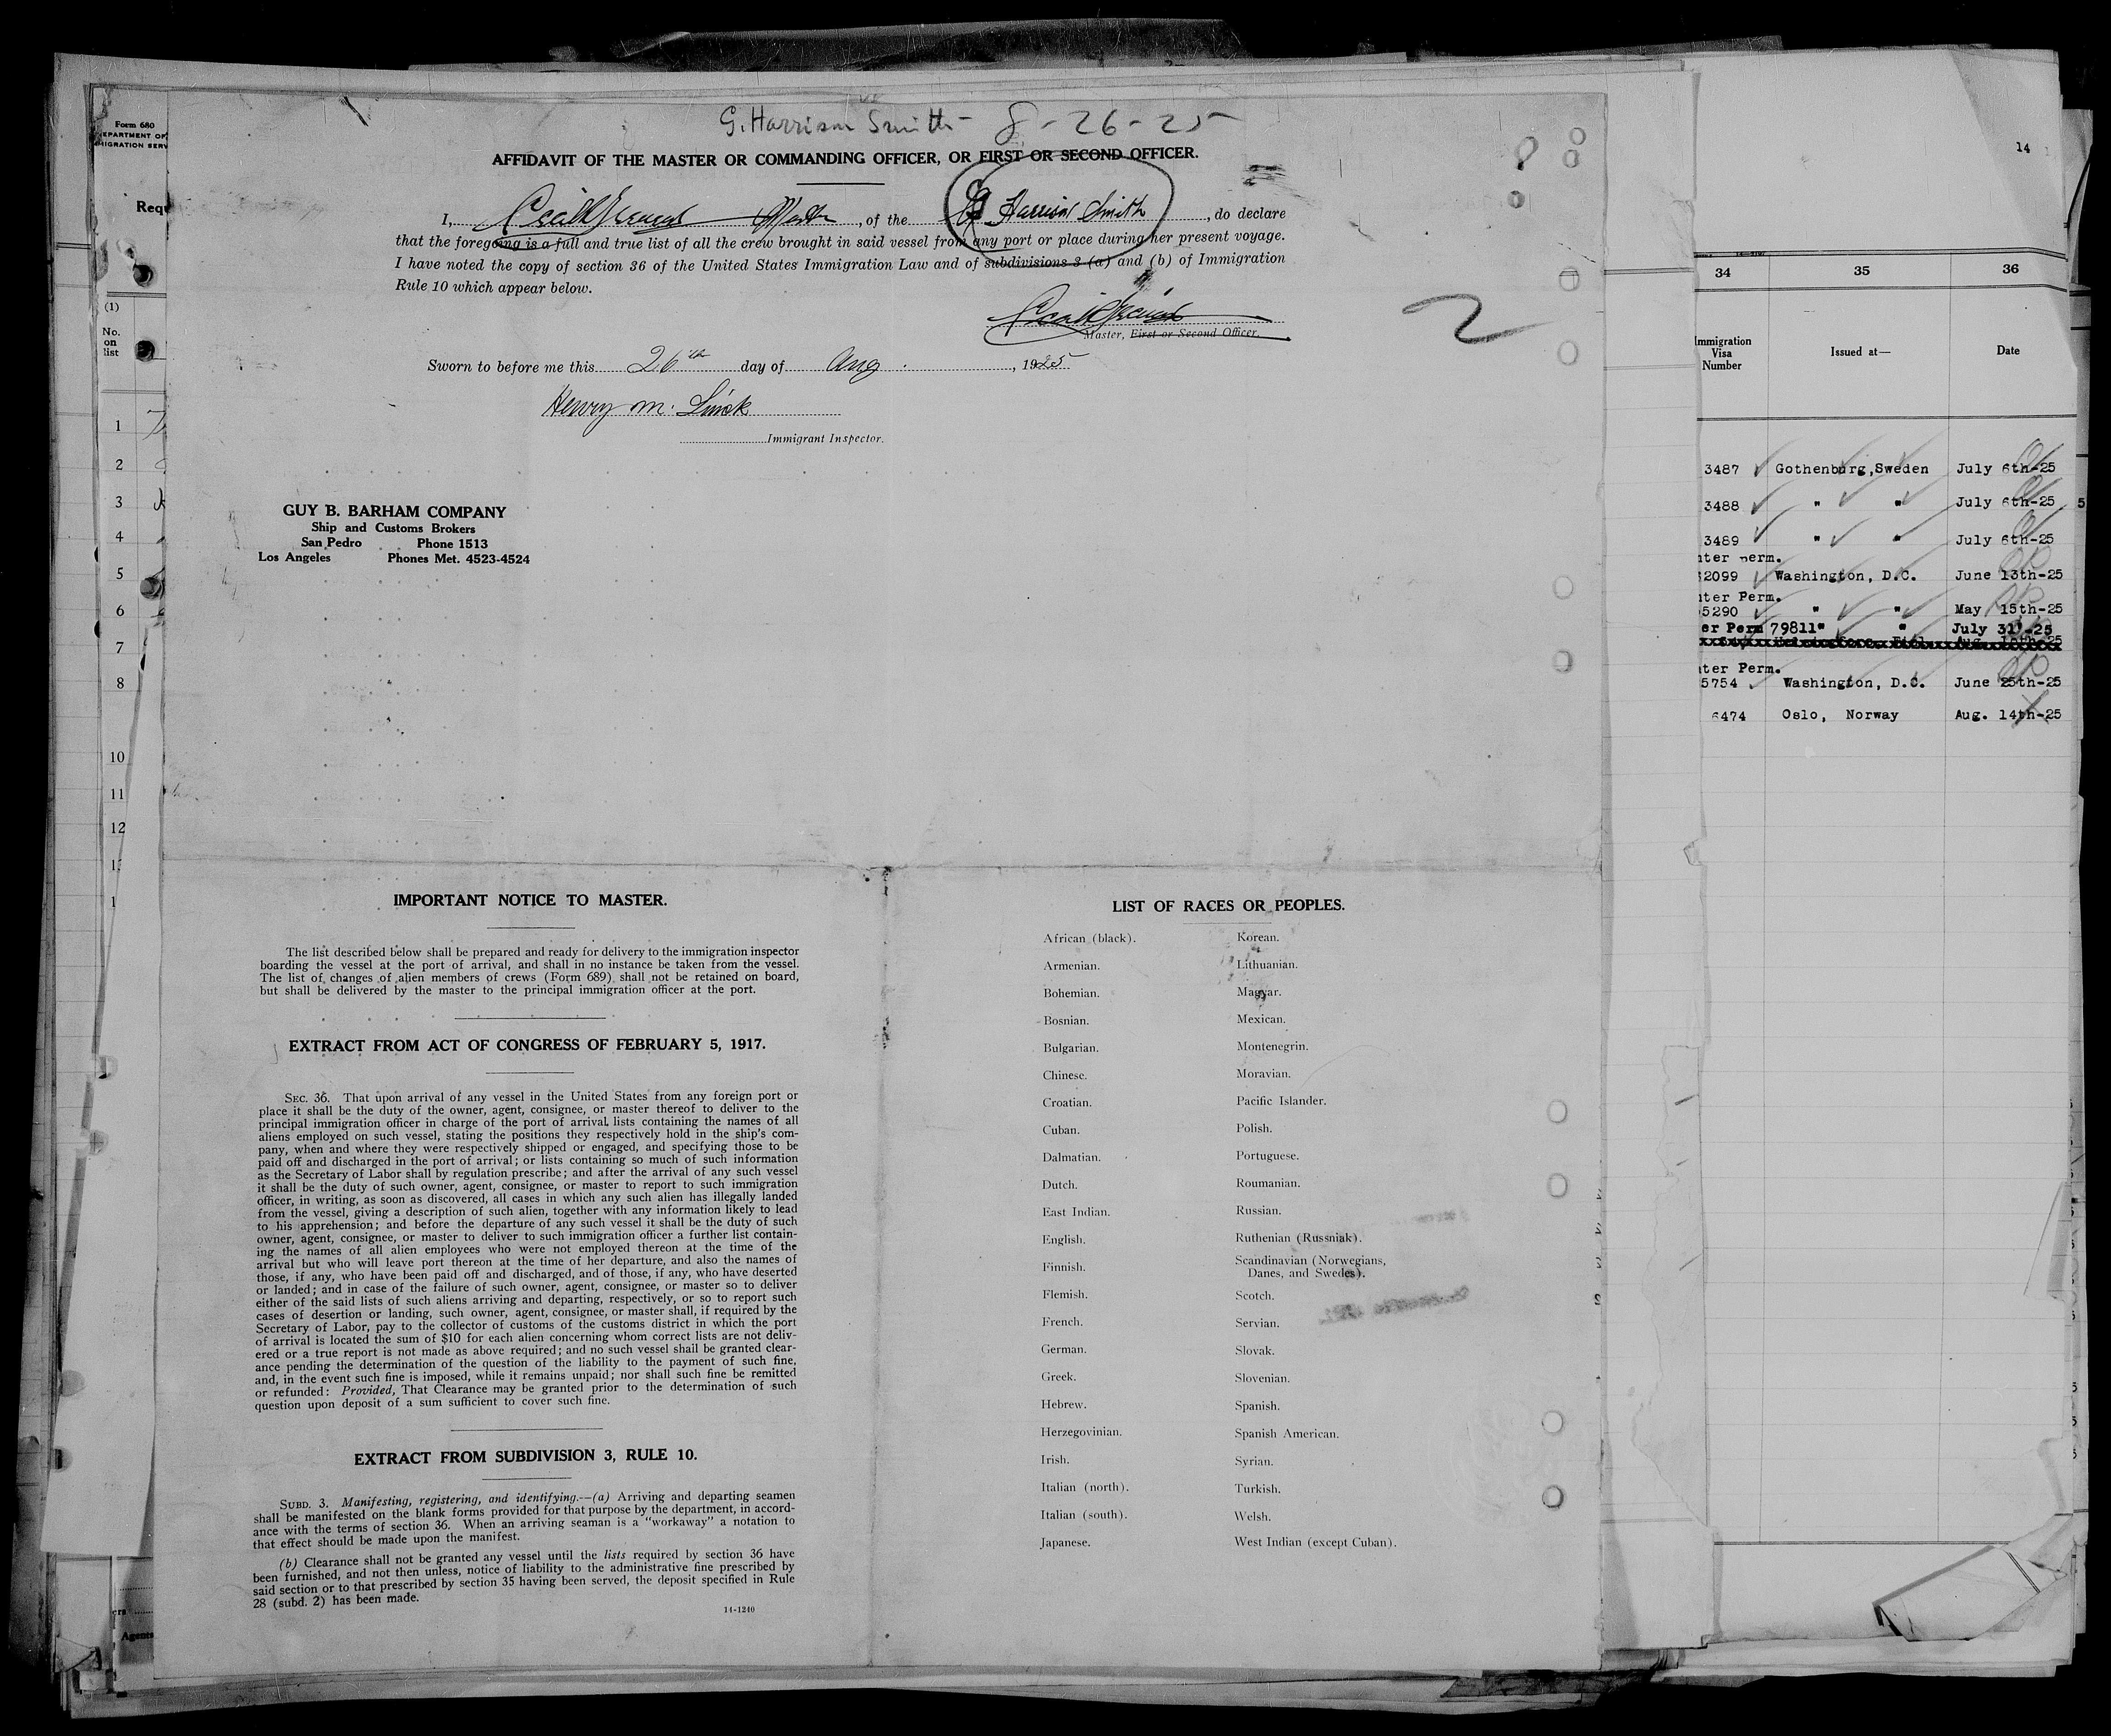 G. Harrison Smith - 8-26-25
AFFIDAVIT OF THE MASTER OR COMMANDING OFFICER, OR FIRST OR SECOND OFFICER.
I, Master, of the G Harrison Smith, do declare
that the foregoing is a full and true list of all the crew brought in said vessel from any port or place during her present voyage.
I have noted the copy of section 36 of the United States Immigration Law and of subdivisions 3 (a) and (b) of Immigration
Rule 10 which appear below.
2
Master, First or Second Officer.
Sworn to before me this 26th day of Aug., 1925
Henry M.
Immigrant Inspector.
GUY B. BARHAM COMPANY
Ship and Customs Brokers
San Pedro Phone 1513
Los Angeles Phones Met. 4523-4524
IMPORTANT NOTICE TO MASTER.
The list described below shall be prepared and ready for delivery to the immigration inspector
boarding the vessel at the port of arrival, and shall in no instance be taken from the vessel.
The list of changes of alien members of crews (Form 689) shall not be retained on board,
but shall be delivered by the master to the principal immigration officer at the port.
EXTRACT FROM ACT OF CONGRESS OF FEBRUARY 5, 1917.
SEC. 36. That upon arrival of any vessel in the United States from any foreign port or
place it shall be the duty of the owner, agent, consignee, or master thereof to deliver to the
principal immigration officer in charge of the port of arrival lists containing the names of all
aliens employed on such vessel, stating the positions they respectively hold in the ship's com-
pany, when and where they were respectively shipped or engaged, and specifying those to be
paid off and discharged in the port of arrival; or lists containing so much of such information
as the Secretary of Labor shall by regulation prescribe; and after the arrival of any such vessel
it shall be the duty of such owner, agent, consignee, or master to report to such immigration
officer, in writing, as soon as discovered, all cases in which any such alien has illegally landed
from the vessel, giving a description of such alien, together with any information likely to lead
to his apprehension; and before the departure of any such vessel it shall be the duty of such
owner, agent, consignee, or master to deliver to such immigration officer a further list contain-
ing the names of all alien employees who were not employed thereon at the time of the
arrival but who will leave port thereon at the time of her departure, and also the names of
those, if any, who have been paid off and discharged, and of those, if any, who have deserted
or landed; and in case of the failure of such owner, agent, consignee, or master so to deliver
either of the said lists of such aliens arriving and departing, respectively, or so to report such
cases of desertion or landing, such owner, agent, consignee, or master shall, if required by the
Secretary of Labor, pay to the collector of customs of the customs district in which the port
of arrival is located the sum of $10 for each alien concerning whom correct lists are not deliv-
ered or a true report is not made as above required; and no such vessel shall be granted clear-
ance pending the determination of the question of the liability to the payment of such fine,
and, in the event such fine is imposed, while it remains unpaid; nor shall such fine be remitted
or refunded: Provided, That Clearance may be granted prior to the determination of such
question upon deposit of a sum sufficient to cover such fine.
EXTRACT FROM SUBDIVISION 3, RULE 10.
SUBD. 3. Manifesting, registering, and identifying.—(a) Arriving and departing seamen
shall be manifested on the blank forms provided for that purpose by the department, in accord-
ance with the terms of section 36. When an arriving seaman is a "workaway" a notation to
that effect should be made upon the manifest.
(b) Clearance shall not be granted any vessel until the lists required by section 36 have
been furnished, and not then unless, notice of liability to the administrative fine prescribed by
said section or to that prescribed by section 35 having been served, the deposit specified in Rule
28 (subd. 2) has been made.
14-1240
LIST OF RACES OR PEOPLES.
African (black). Korean.
Armenian. Lithuanian.
Bohemian. Magyar.
Bosnian. Mexican.
Bulgarian. Montenegrin.
Chinese. Moravian.
Croatian. Pacific Islander.
Cuban. Polish.
Dalmatian. Portuguese.
Dutch. Roumanian.
East Indian. Russian.
English. Ruthenian (Russniak).
Finnish. Scandinavian (Norwegians,
Danes, and Swedes).
Flemish. Scotch.
French. Servian.
German. Slovak.
Greek. Slovenian.
Hebrew. Spanish.
Herzegovinian. Spanish American.
Irish. Syrian.
Italian (north). Turkish.
Italian (south). Welsh.
Japanese. West Indian (except Cuban).
Form 680
EPARTMENT OF
MIGRATION SERV
Requ
(1)
No.
on
list
1
2
3
4
5
6
7
8
10
11
12
Agents
14
34 35 36
Immigration
Visa
Number
Issued at—
Date
3487 Gothenburg, Sweden July 6th-25
3488 " " July 6th-25
3489 " " July 6th-25
nter perm.
2099 Washington, D.C. June 13th-25
nter Perm.
5290 " " May 15th-25
er Perm 79811" " July 31-25
nter Perm.
5754 Washington, D.C. June 25th-25
6474 Oslo, Norway Aug. 14th-25